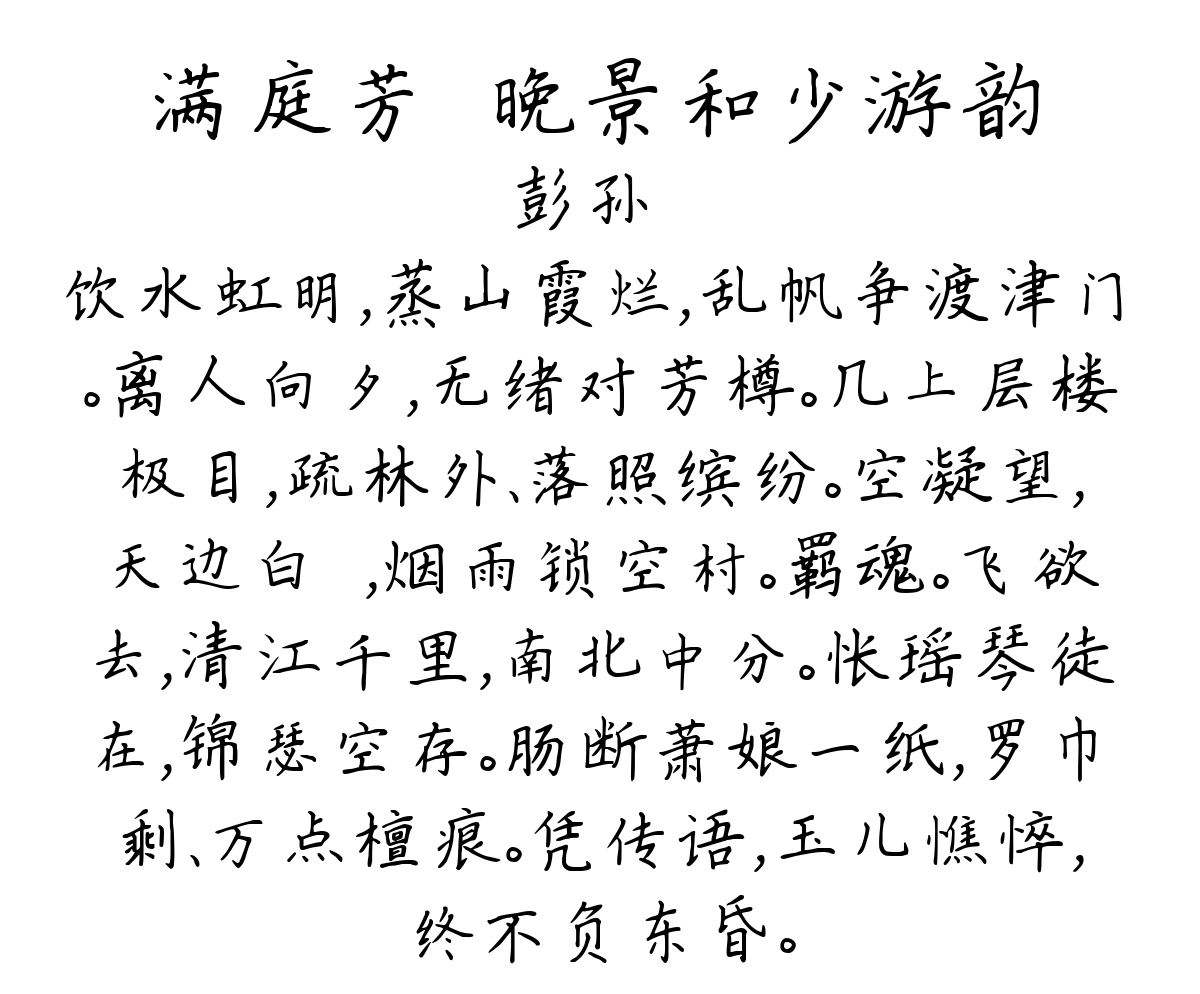 满庭芳 晚景和少游韵
彭孙
饮水虹明,蒸山霞烂,乱帆争渡津门
。离人向夕,无绪对芳樽。几上层楼
极目,疏林外、落照缤纷。空凝望,
天边白 ,烟雨锁空村。羁魂。飞欲
去,清江千里,南北中分。怅瑶琴徒
在,锦瑟空存。肠断萧娘一纸,罗巾
剩、万点檀痕。凭传语,玉儿憔悴,
终不负东昏。